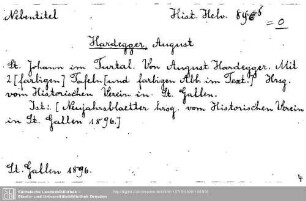 Nebentitel
Hist. Helv. 896 b
= 0
Hardegger, August
St. Johann im Turtal. Von August Hardegger. Mit
2 [farbigen] Tafeln [und farbigen Abb. im Text.] Hrsg.
vom Historischen Verein in St. Gallen.
Ist: [Neujahrsblaetter hrsg. vom Historischen Verein
in St. Gallen 1896.]
St. Gallen 1896.